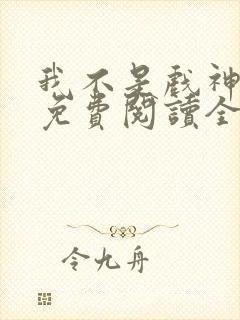 我不是戲神
免費閱讀全
令九舟